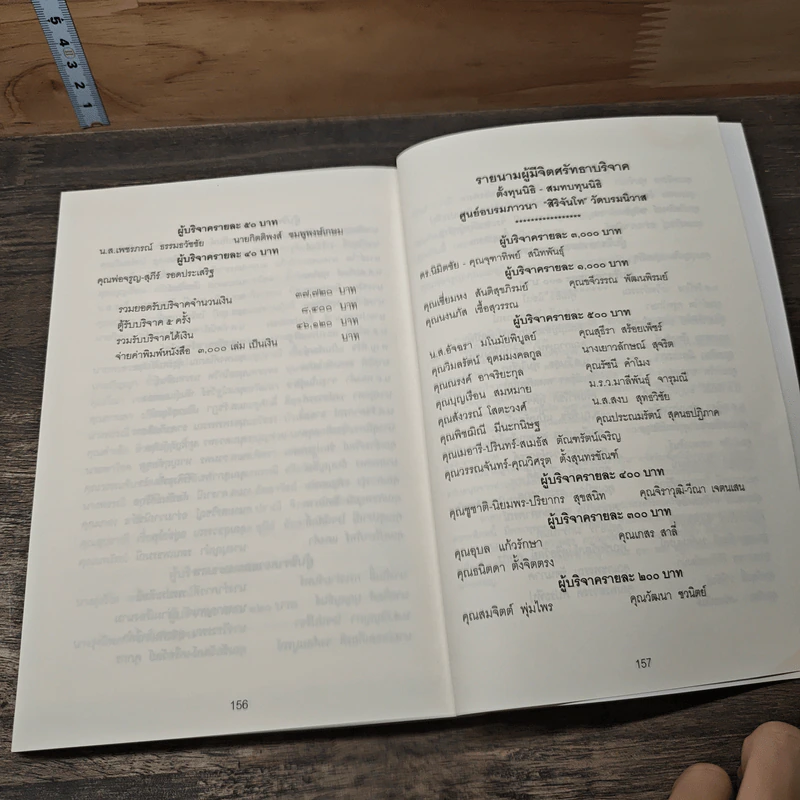 ผู้บริจาครายละ ๕๐ บาท
น.ส.เพชรภรณ์ ธรรมธวัชชัย นายกิตติพงส์ ชมพูพงษ์เกษม
ผู้บริจาครายละ ๔๐ บาท
คุณพ่อจรูญ-สุภีร์ รอดประเสริฐ
รวมยอดรับบริจาคจำนวนเงิน ๓๗,๗๒๐ บาท
ตู้รับบริจาค ๕ ครั้ง ๘,๔๐๐ บาท
รวมรับบริจาคได้เงิน ๔๖,๑๒๐ บาท
จ่ายค่าพิมพ์หนังสือ ๓,๐๐๐ เล่ม เป็นเงิน บาท
156
รายนามผู้มีจิตศรัทธาบริจาค
ตั้งทุนนิธิ - สมทบทุนนิธิ
ศูนย์อบรมภาวนา "สิริจันโท" วัดบรมนิวาส
*****************
ผู้บริจาครายละ ๓,๐๐๐ บาท
ดร.นิมิตชัย - คุณจุฑาทิพย์ สนิทพันธุ์
ผู้บริจาครายละ ๑,๐๐๐ บาท
คุณเซี่ยมหง สันติสุขภิรมย์ คุณขจีวรรณ พัฒนพิรมย์
คุณนงนภัส เชื้อสุวรรณ
ผู้บริจาครายละ ๕๐๐ บาท
น.ส.อัจฉรา มโนมัยพิบูลย์ คุณสุธีรา สร้อยเพ็ชร์
คุณวิมลรัตน์ อุดมมงคลกูล นางเยาวลักษณ์ สุจริต
คุณณรงค์ อาจริยะกุล คุณรัชนี คำโมง
คุณบุญเรือน สมหมาย ม.ร.ว.มาลีพันธุ์ จารุมณี
คุณสังวรณ์ โสตะวงศ์ น.ส.สงบ สุทธวิชัย
คุณพิชฌิณี มีนะกนิษฐ คุณประณมรัตน์ สุคนธปฏิภาค
คุณเมอารี-ปรินทร์-สเมธัส ตัณฑรัตน์เจริญ
คุณวรรณจันทร์-คุณวิศรุต ตั้งสุนทรขัณฑ์
ผู้บริจาครายละ ๔๐๐ บาท
คุณชูชาติ-นิยมพร-ปริยากร สุขสนิท คุณจิราวุฒิ-วีณา เจตนเสน
ผู้บริจาครายละ ๓๐๐ บาท
คุณอุบล แก้วรักษา คุณเกสร สาลี่
คุณธนิตดา ตั้งจิตตรง
ผู้บริจาครายละ ๒๐๐ บาท
คุณสมจิตต์ พุ่มไพร คุณวัฒนา ชวนิตย์
157
5
4
3
2
1